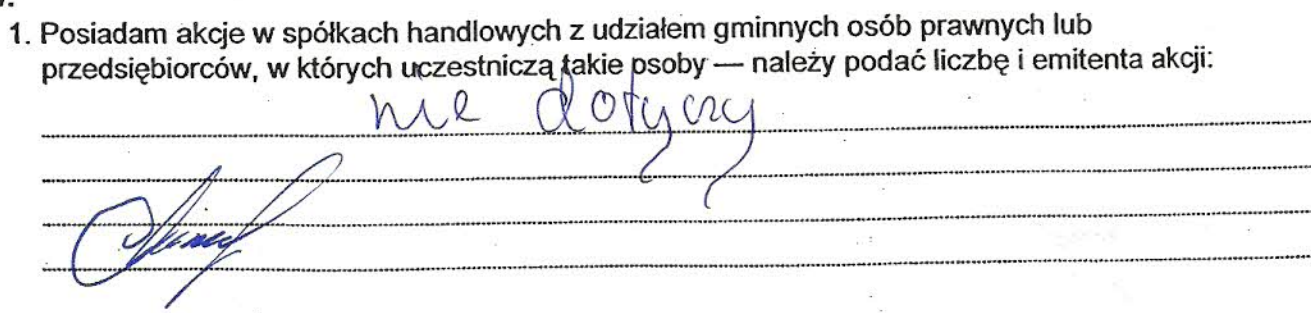 1. Posiadam akcje w spółkach handlowych z udziałem gminnych osób prawnych lub
przedsiębiorców, w których uczestniczą takie osoby — należy podać liczbę i emitenta akcji:
nie dotyczy